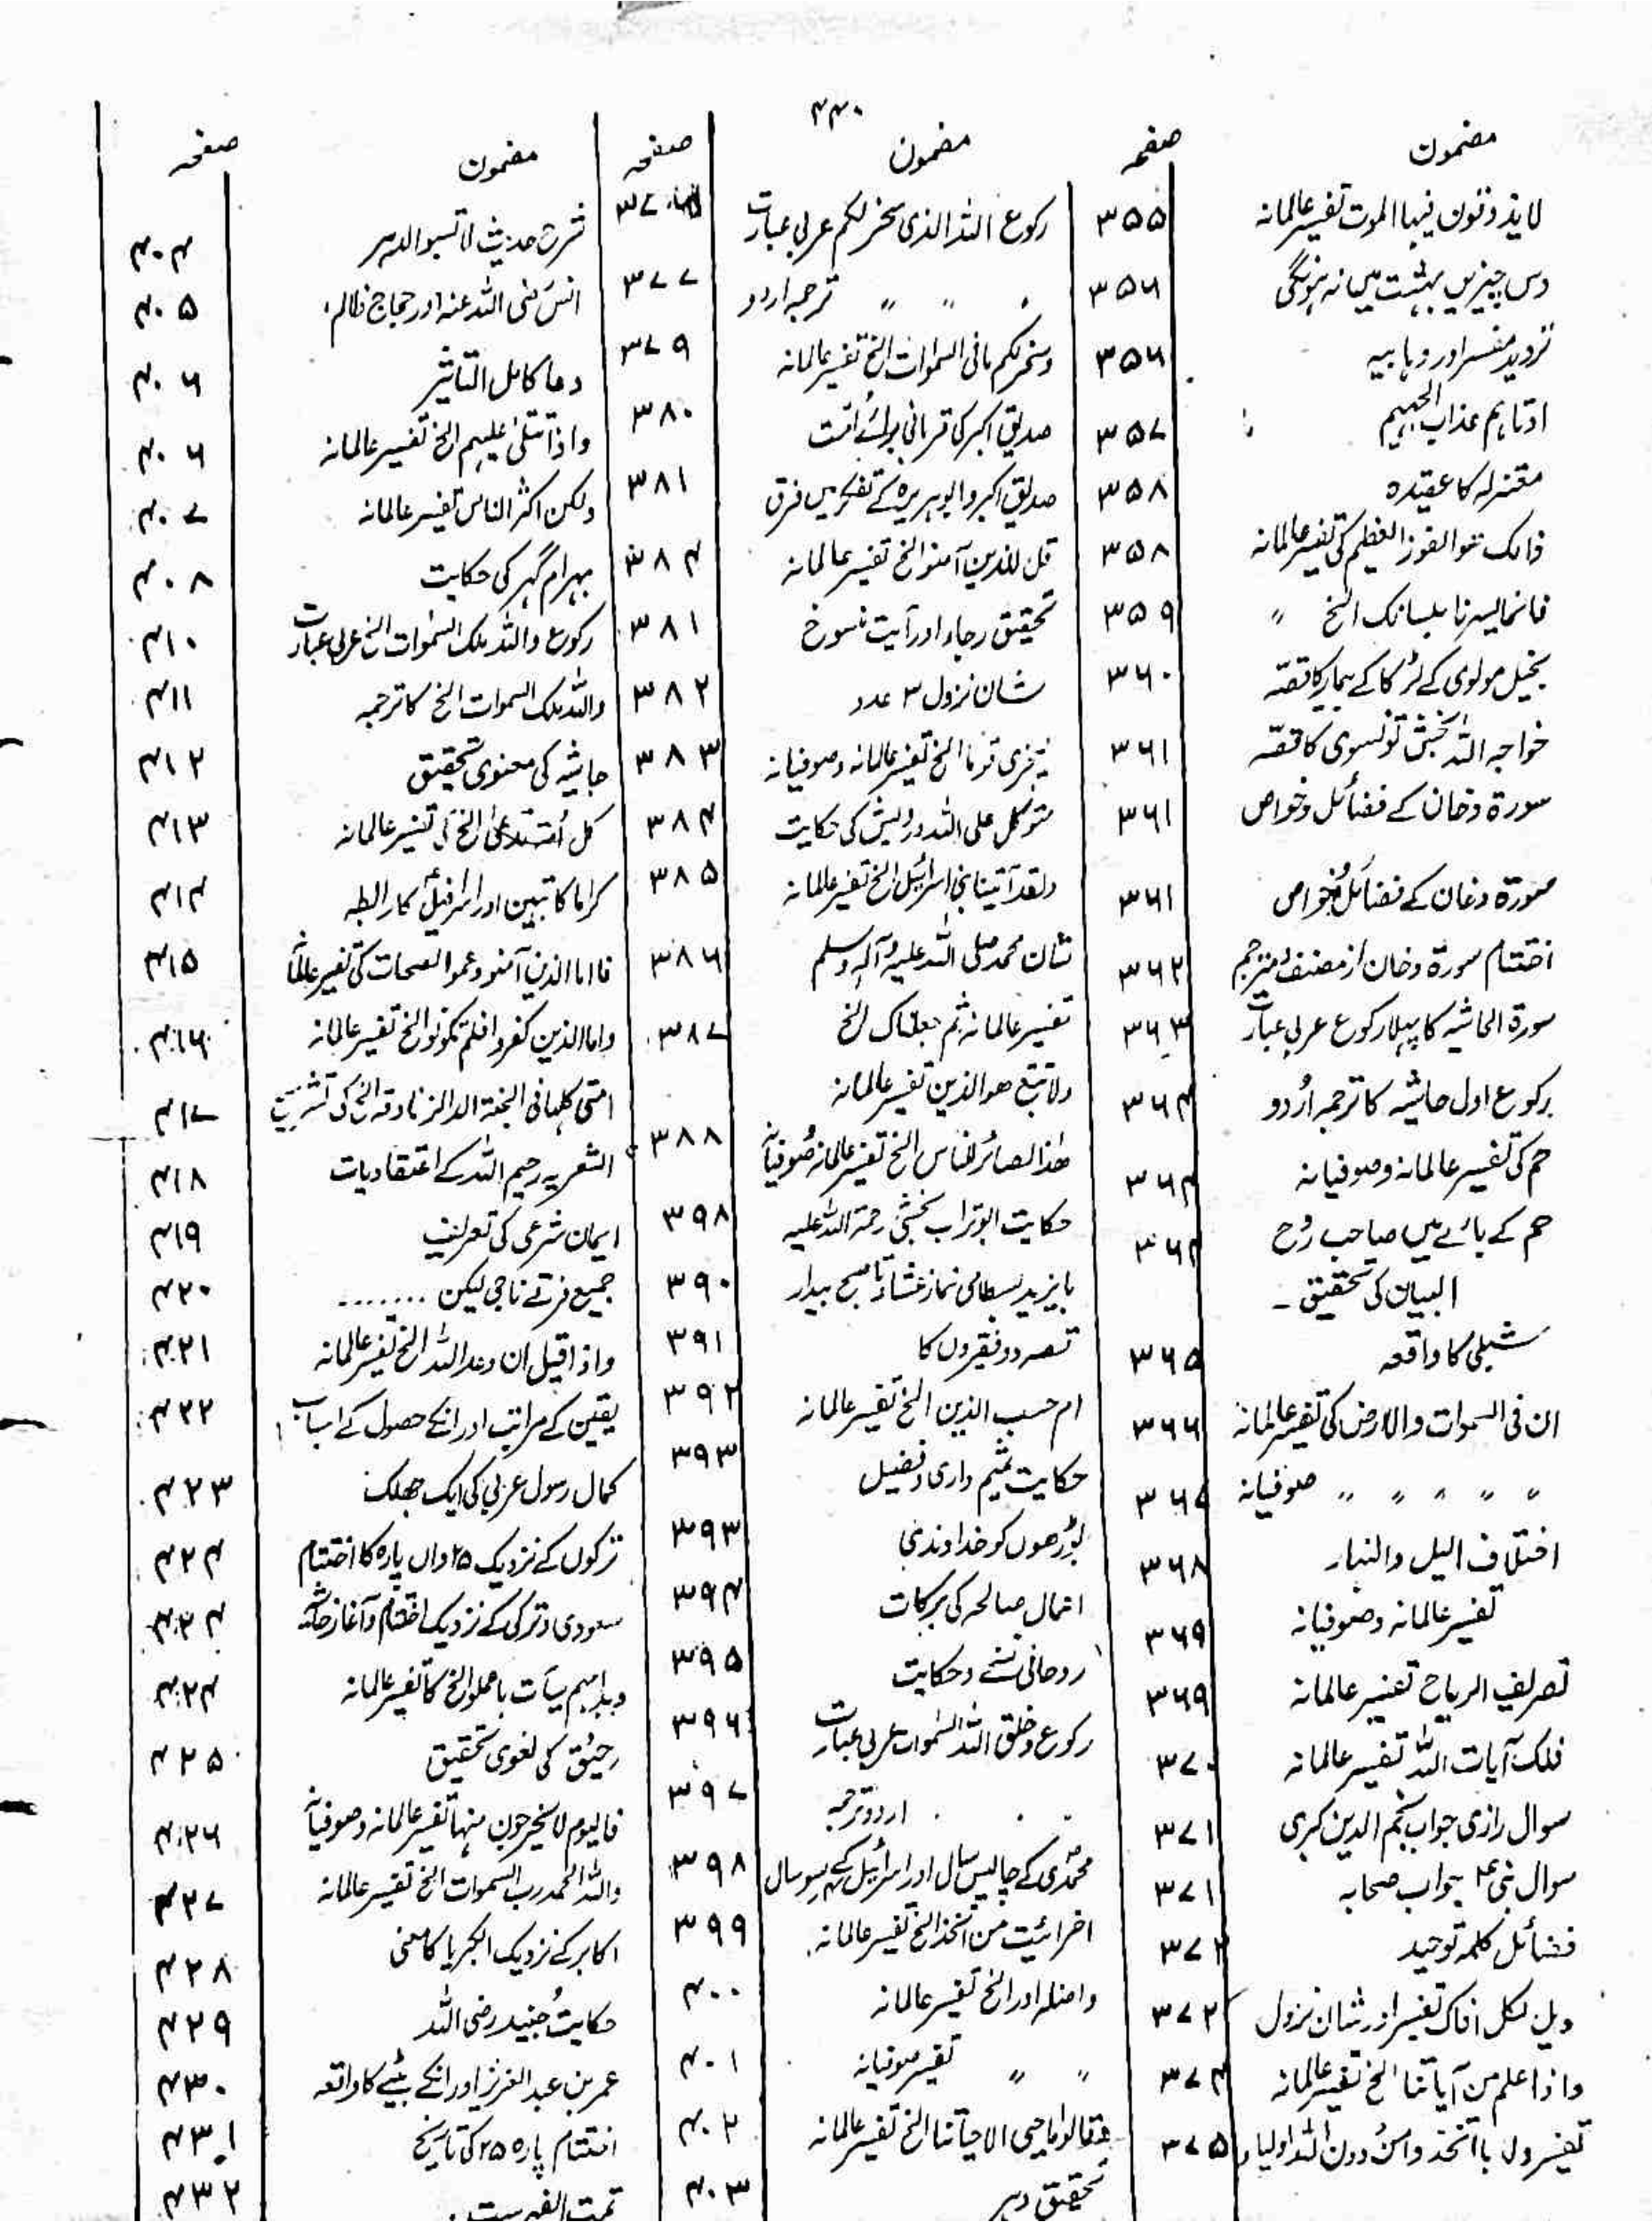 ۴۴۰
مضمون صفحہ
لا یذوقون فیہا الموت تفسیر عالمانہ ۳۵۵
دس چیزیں بہشت میں نہ ہونگی ۳۵۶
تردید مفسر اور وہابیہ ۳۵۶
عذاب الجحیم ۳۵۷
معتزلہ کا عقیدہ ۳۵۸
ذالک ھو الفوز العظیم کی تفسیر عالمانہ ۳۵۸
فانما یسرنا بلسانک الخ 〃 ۳۵۹
بخیل مولوی کے لڑکا کے بیمار کا قصّہ ۳۶۰
خواجہ اللہ بخش تونسوی کا قصّہ ۳۶۱
سورۃ دخان کے فضائل و خواص ۳۶۱
سورۃ دخان کے فضائل و خواص ۳۶۱
اختتام سورۃ دخان از مصنف و مترجم ۳۶۲
سورۃ الجاثیہ کا پہلا رکوع عربی عبارت ۳۶۳
رکوع اول جاثیہ کا ترجمہ اُردو ۳۶۴
حم کی تفسیر عالمانہ و صوفیانہ ۳۶۴
حم کے بارے میں صاحب رُوح ۳۶۴
البیان کی تحقیق ۔
شبلی کا واقعہ ۳۶۵
ان فی السموات والارض کی تفسیر عالمانہ ۳۶۶
〃 〃 〃 〃 〃 صوفیانہ ۳۶۷
اختلاف الیل والنہار ۳۶۸
تفسیر عالمانہ و صوفیانہ ۳۶۹
تصریف الریاح تفسیر عالمانہ ۳۶۹
تلک آیات اللہ تفسیر عالمانہ ۳۷۰
سوال رازی جواب نجم الدین کبری ۳۷۱
سوال نبی جواب صحابہ ۳۷۱
فضائل کلمہ توحید ۳۷۲
ویل لکل افاک تفسیر اور شان نزول ۳۷۲
واذا علم من آیاتنا الخ تفسیر عالمانہ ۳۷۴
تفسیر ولا ما اتخذوا من دون اللہ اولیاء ۳۷۵
مضمون صفحہ
رکوع اللہ الذی سخر لکم عربی عبارت
〃 〃 〃 ترجمہ اردو ۳۷۷
وسخر لکم مافی السموات الخ تفسیر عالمانہ ۳۷۹
صدیق اکبر کی قربانی برائے اُمت ۳۸۰
صدیق اکبر و ابوہریرہ کے تفکر میں فرق ۳۸۱
قل للذین آمنوا الخ تفسیر عالمانہ ۳۸۴
تحقیق رجاء اور آیت منسوخ ۳۸۱
شان نزول ۳ عدد ۳۸۲
لیجزی قوما الخ تفسیر عالمانہ و صوفیانہ ۳۸۳
متوکل علی اللہ درویش کی حکایت ۳۸۴
ولقد آتینا بنی اسرائیل الخ تفسیر عالمانہ ۳۸۵
شان محمد صلی اللہ علیہ وآلہ وسلم ۳۸۶
تفسیر عالمانہ ثم جعلناک الخ ۳۸۷
ولا تتبع ھو الذین تفسیر عالمانہ
ھٰذا بصائر للناس الخ تفسیر عالمانہ صُوفیانہ ۳۸۸
حکایت ابوتراب بخشی رحمۃ اللہ علیہ ۳۹۸
بایزید بسطامی نماز عشاء تا صبح بیدار ۳۹۰
قصہ دو فقیروں کا ۳۹۱
ام حسب الذین الخ تفسیر عالمانہ ۳۹۲
حکایت تمیم داری و فضیل ۳۹۳
بوڑھوں کو خداوندی ۳۹۳
اعمال صالحہ کی برکات ۳۹۴
روحانی نسخے و حکایت ۳۹۵
رکوع وخلق اللہ السمٰوات عربی عبارت ۳۹۶
〃 〃 〃 اردو ترجمہ ۳۹۷
محمدی کے چالیس سال اور اسرائیل کے سو سال ۳۹۸
افرائیت من اتخذ الخ تفسیر عالمانہ ۳۹۹
واضلہ اور الخ تفسیر عالمانہ ۴۰۰
〃 〃 تفسیر صوفیانہ ۴۰۱
وقالوا ماھی الا حیاتنا الخ تفسیر عالمانہ ۴۰۲
تحقیق دہر ۴۰۳
مضمون صفحہ
شرح حدیث لا تسبو الدہر ۴۰۴
انس رضی اللہ عنہ اور حجاج ظالم ۴۰۵
دعا کامل التاثیر ۴۰۶
واذا تتلیٰ علیہم الخ تفسیر عالمانہ ۴۰۶
ولکن اکثر الناس تفسیر عالمانہ ۴۰۷
بہرام گہر کی حکایت ۴۰۸
رکوع وللہ ملک السمٰوات الخ عربی عبارت ۴۱۰
وللہ ملک السموات الخ کا ترجمہ ۴۱۱
جاثیہ کی معنوی تحقیق ۴۱۲
کل اُمۃ تدعیٰ الخ کی تفسیر عالمانہ ۴۱۳
کراما کاتبین اور اسرافیل کا رابطہ ۴۱۴
فاما الذین آمنو وعمو الصحات کی تفسیر عالمانہ ۴۱۵
واما الذین کفروا فلم تکونوا الخ تفسیر عالمانہ ۴۱۶
امتی کلہا فی الجنۃ الا الزنادقہ الخ کی تشریح ۴۱۷
اشعریہ رحیم اللہ کے اعتقادیات ۴۱۸
ایمان شرعی کی تعریف ۴۱۹
جمیع فرقے ناجی لیکن ........ ۴۲۰
واذا قیل ان وعد اللہ الخ تفسیر عالمانہ ۴۲۱
یقین کے مراتب اور انکے حصول کے اسباب ۴۲۲
کمال رسول عربی کی ایک جھلک ۴۲۳
ترکوں کے نزدیک ۲۵ واں پارہ کا اختتام ۴۲۴
سعودی و ترکی کے نزدیک اختتام و آغاز ۴۲۴
وبدا لہم سیآت ماعملوا الخ کا تفسیر عالمانہ ۴۲۴
کی لغوی تحقیق ۴۲۵
فالیوم لا یخرجون منہا تفسیر عالمانہ و صوفیانہ ۴۲۶
وللہ الحمد رب السموات الخ تفسیر عالمانہ ۴۲۷
اکابر کے نزدیک الکبریا کا معنی ۴۲۸
حکایت جنید رضی اللہ ۴۲۹
عمر بن عبد العزیز اور انکے بیٹے کا واقعہ ۴۳۰
اختتام پارہ ۲۵ کی تاریخ ۴۳۱
تمت الفہرست ۔ ۴۳۲